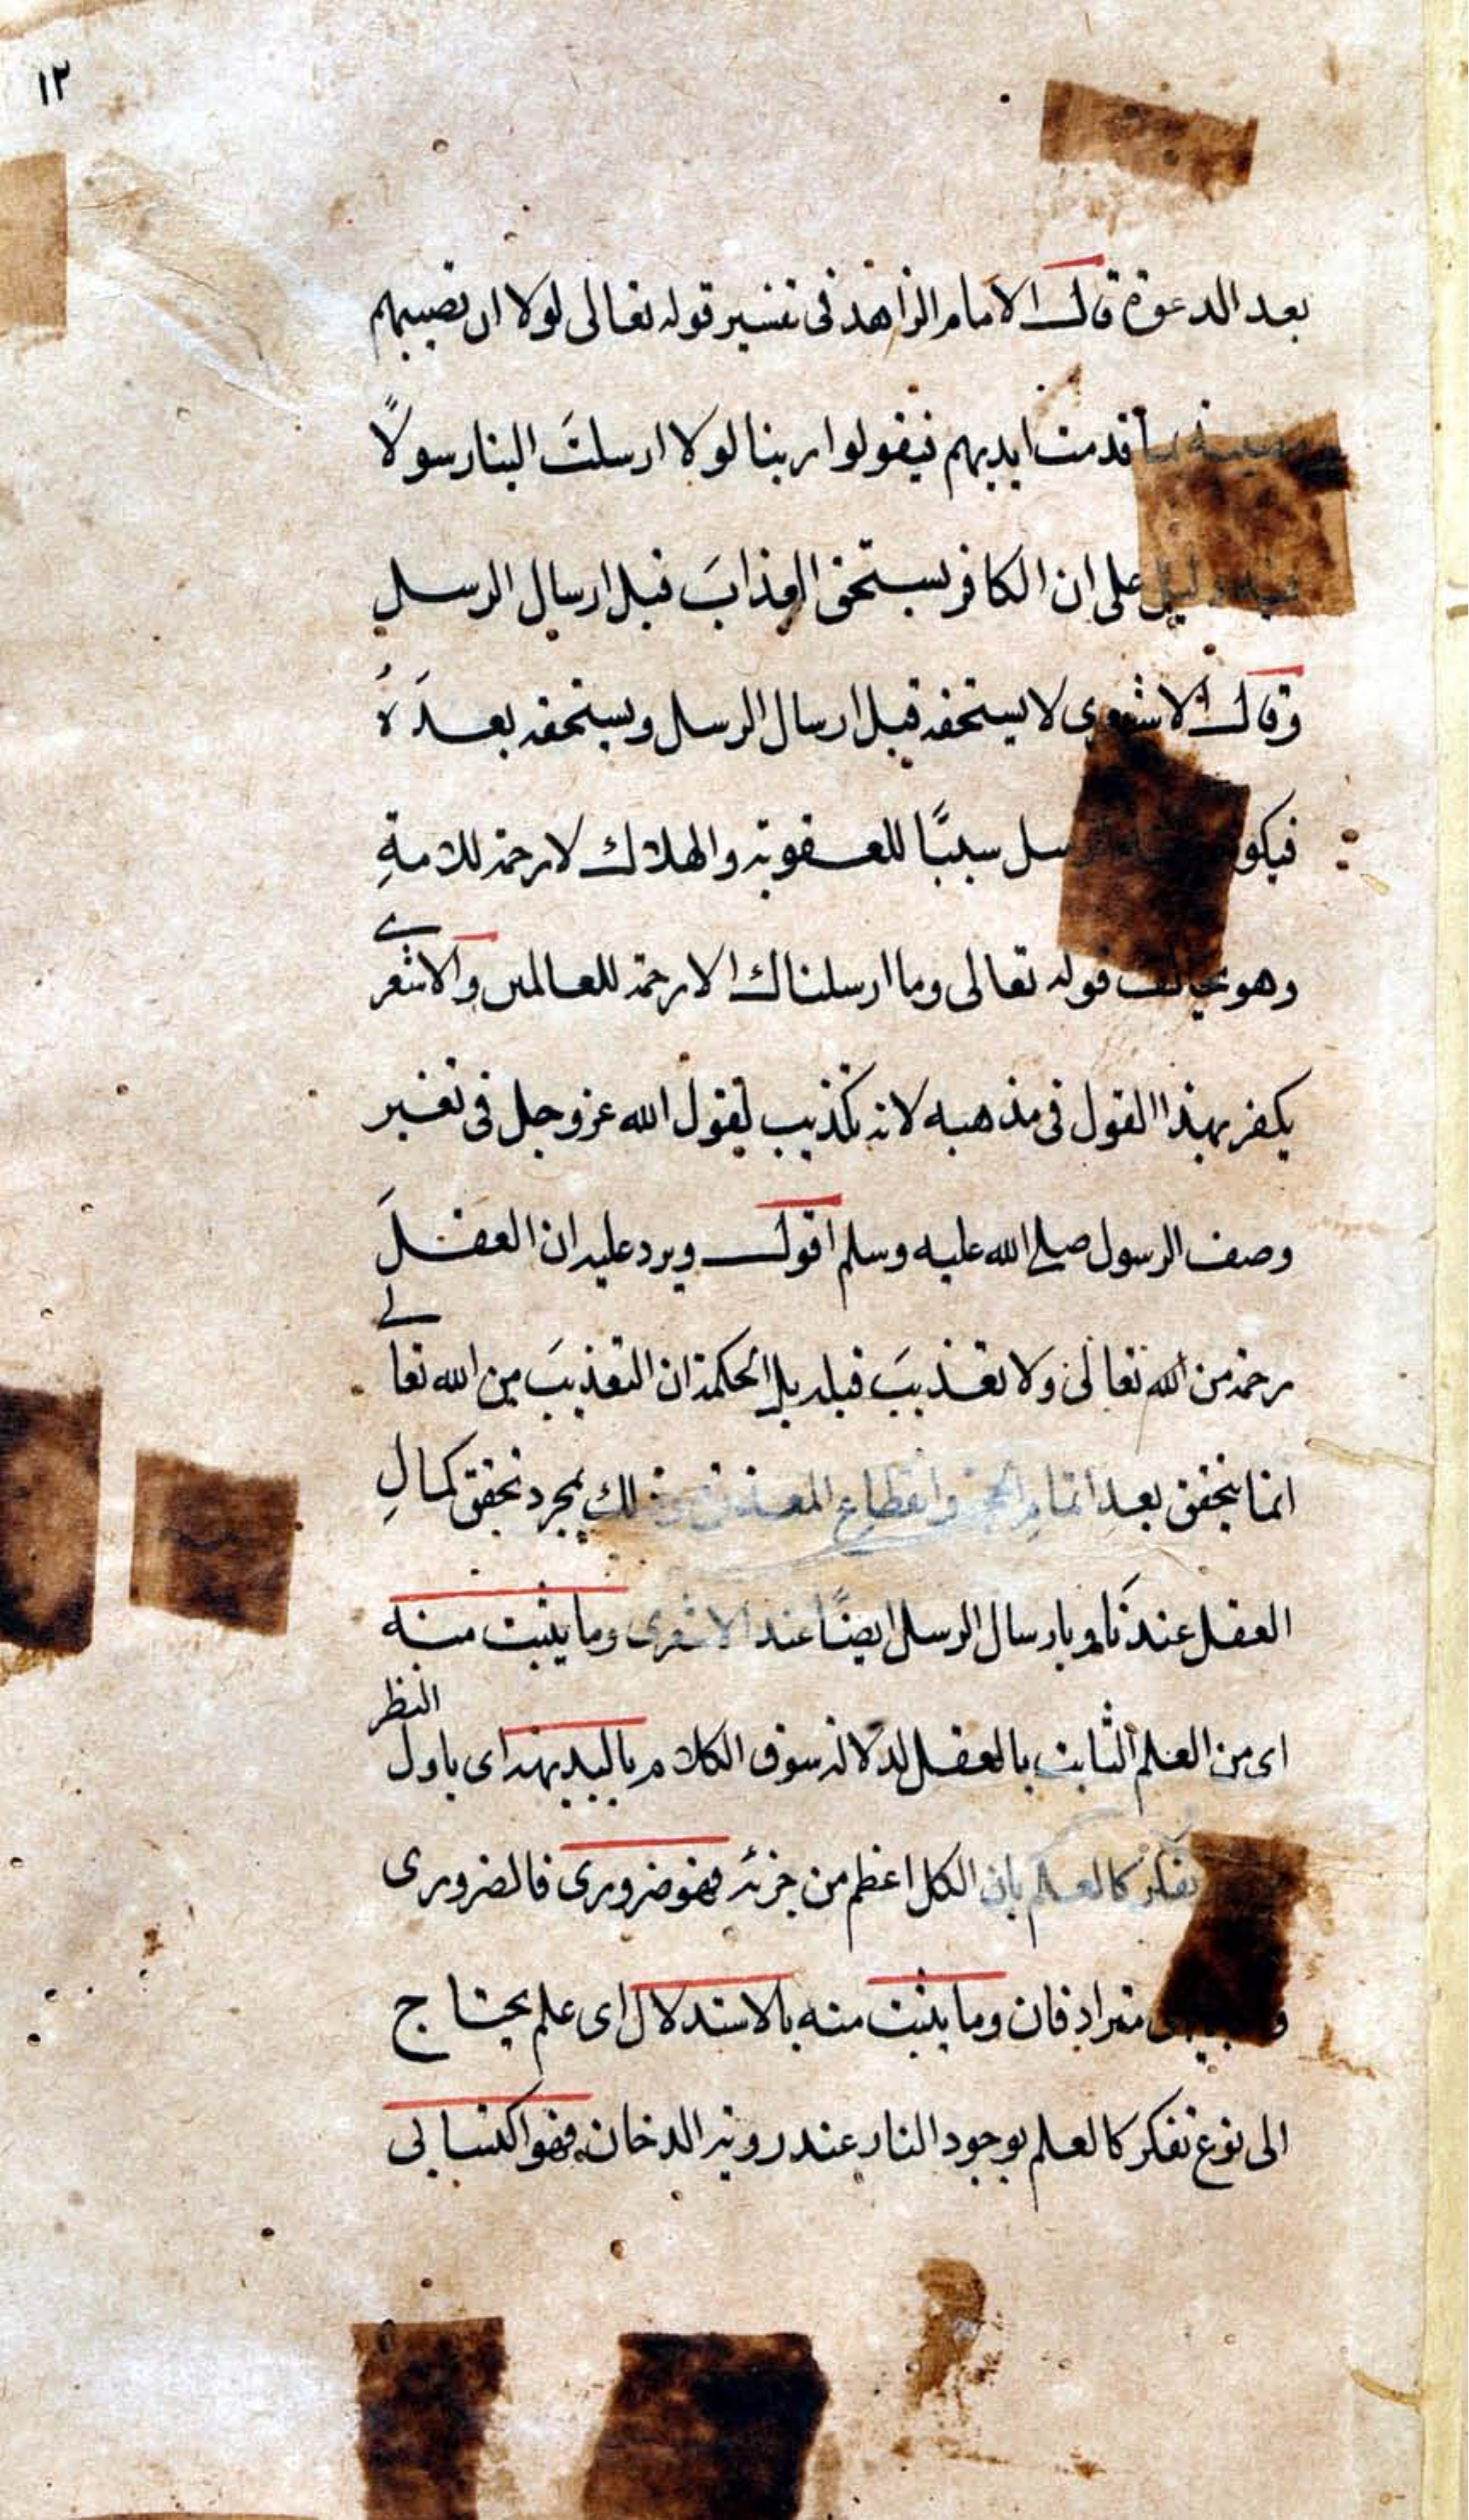 ١٢
بعد الدعوة قال الامام الزاهد فى تفسير قوله تعالى لولا ان تصيبهم
مصيبة بما قدمت ايديهم فيقولوا ربنا لولا ارسلتَ الينا رسولًا
فيه دليل على ان الكافر يستحق العذابَ قبل ارسال الرسلِ
وقال الاشعرى لا يستحقه قبل ارسال الرسل ويستحقه بعدَهُ
فيكو الرسل سببًا للعقوبة والهلاك لا رحمة للامةِ
وهو يخالف قوله تعالى وما ارسلناك الا رحمة للعالمين والاشعرى
يكفر بهذا القول فى مذهبه لانه تكذيب لقول الله عز وجل فى تغير
وصف الرسول صلى الله عليه وسلم اقول ويرد عليه ان العقلَ
رحمة من الله تعالى ولا تعذيبَ قبله بل الحكمة ان التعذيبَ من الله تعالى
انما يتحقق بعد اتمامِ الحجة وانقطاعِ المعذرة وذلك بمجرد تحقق كمالِ
العقل عندنا وبارسال الرسل ايضًا عند الاشعرى وما يثبت منه
اى من العلم الثابت بالعقل لدلالة سوق الكلام بالبديهة اى باول النظر
تفكر كالعلم بان الكل اعظم من جزئه فهو ضرورى فالضرورى
مترادفان وما يثبت منه بالاستدلال اى علم يحتاج
الى نوع تفكر كالعلم بوجود النار عند روية الدخان فهو اكتسابى